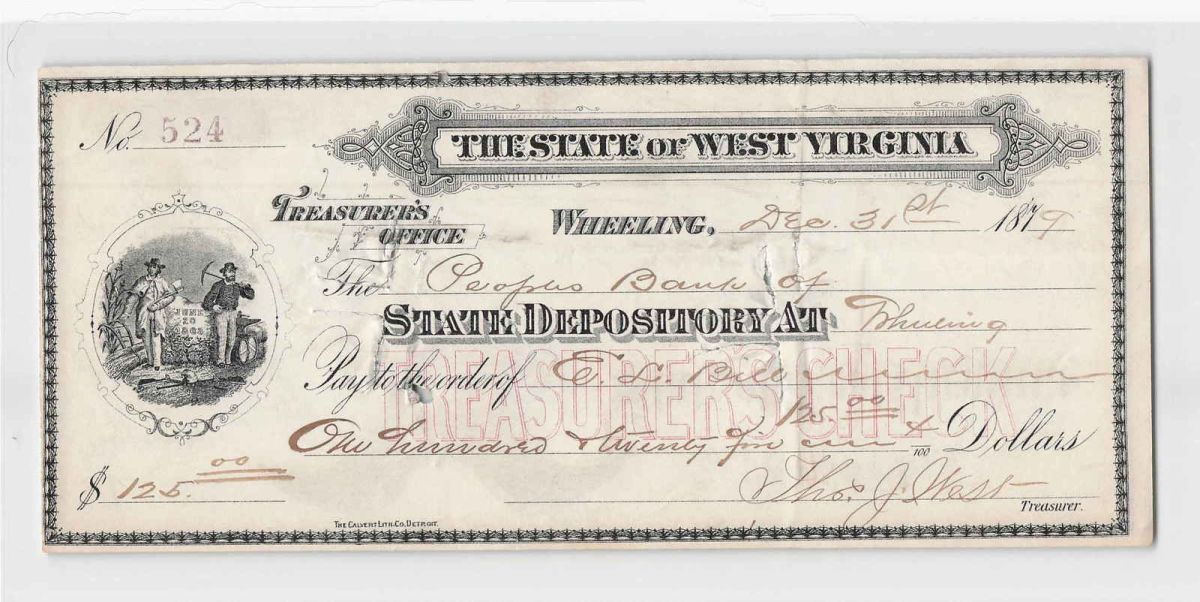 No. 524
THE STATE OF WEST VIRGINIA
TREASURER'S OFFICE
WHEELING, Dec. 31st 1879
JUNE 20 1863
The Peoples Bank of
STATE DEPOSITORY AT Wheeling
TREASURER'S CHECK
Pay to the order of E. L.
125.00
One hundred & twenty five & /100 Dollars
$ 125.00
Thos. J. West
Treasurer.
THE CALVERT LITH. CO. DETROIT.